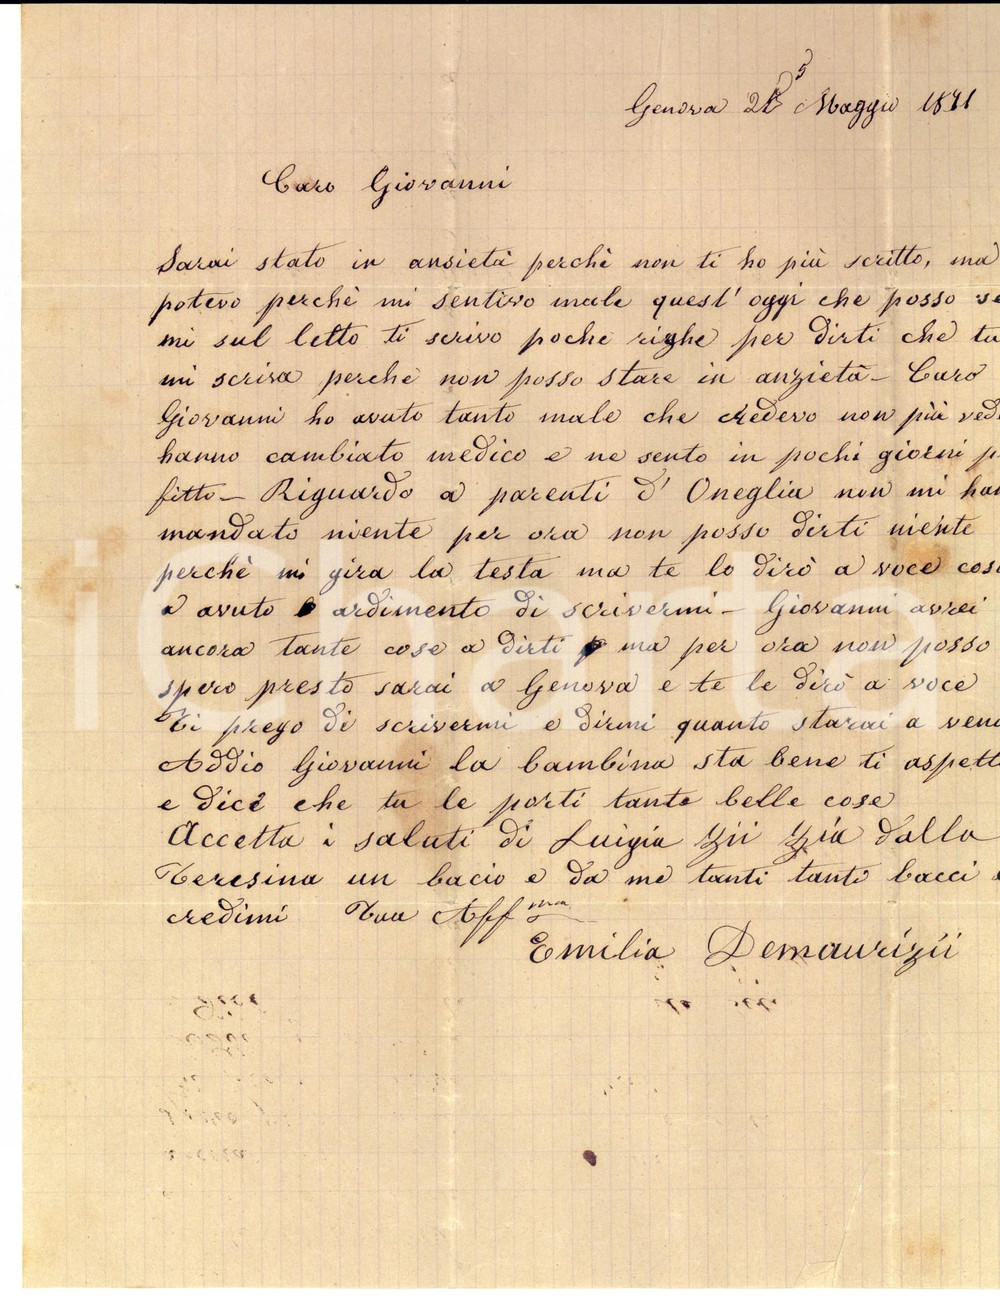 Genova 25 Maggio 1871
Caro Giovanni
Sarai stato in ansietà perchè non ti ho più scritto, ma
potevo perchè mi sentivo male quest' oggi che posso se
mi sul letto ti scrivo poche righe per dirti che tu
mi scriva perche non posso stare in anzietà - Caro
Giovanni ho avuto tanto male che credevo non più ved
hanno cambiato medico e ne sento in pochi giorni p
fitto - Riguardo a parenti d' Oneglia non mi han
mandato niente per ora non posso dirti niente
perchè mi gira la testa ma te lo dirò a voce cosa
a avuto ardimento di scrivermi - Giovanni avrei
ancora tante cose a dirti ma per ora non posso
spero presto sarai a Genova e te le dirò a voce
Ti prego di scrivermi e dirmi quanto starai a ven
Addio Giovanni la bambina sta bene ti aspett
e dice che tu le porti tante belle cose
Accetta i saluti di Luigia Zii Zia dalla
Teresina un bacio e da me tanti tanti bacci e
credimi Tua Aff ma
Emilia Demaurizii